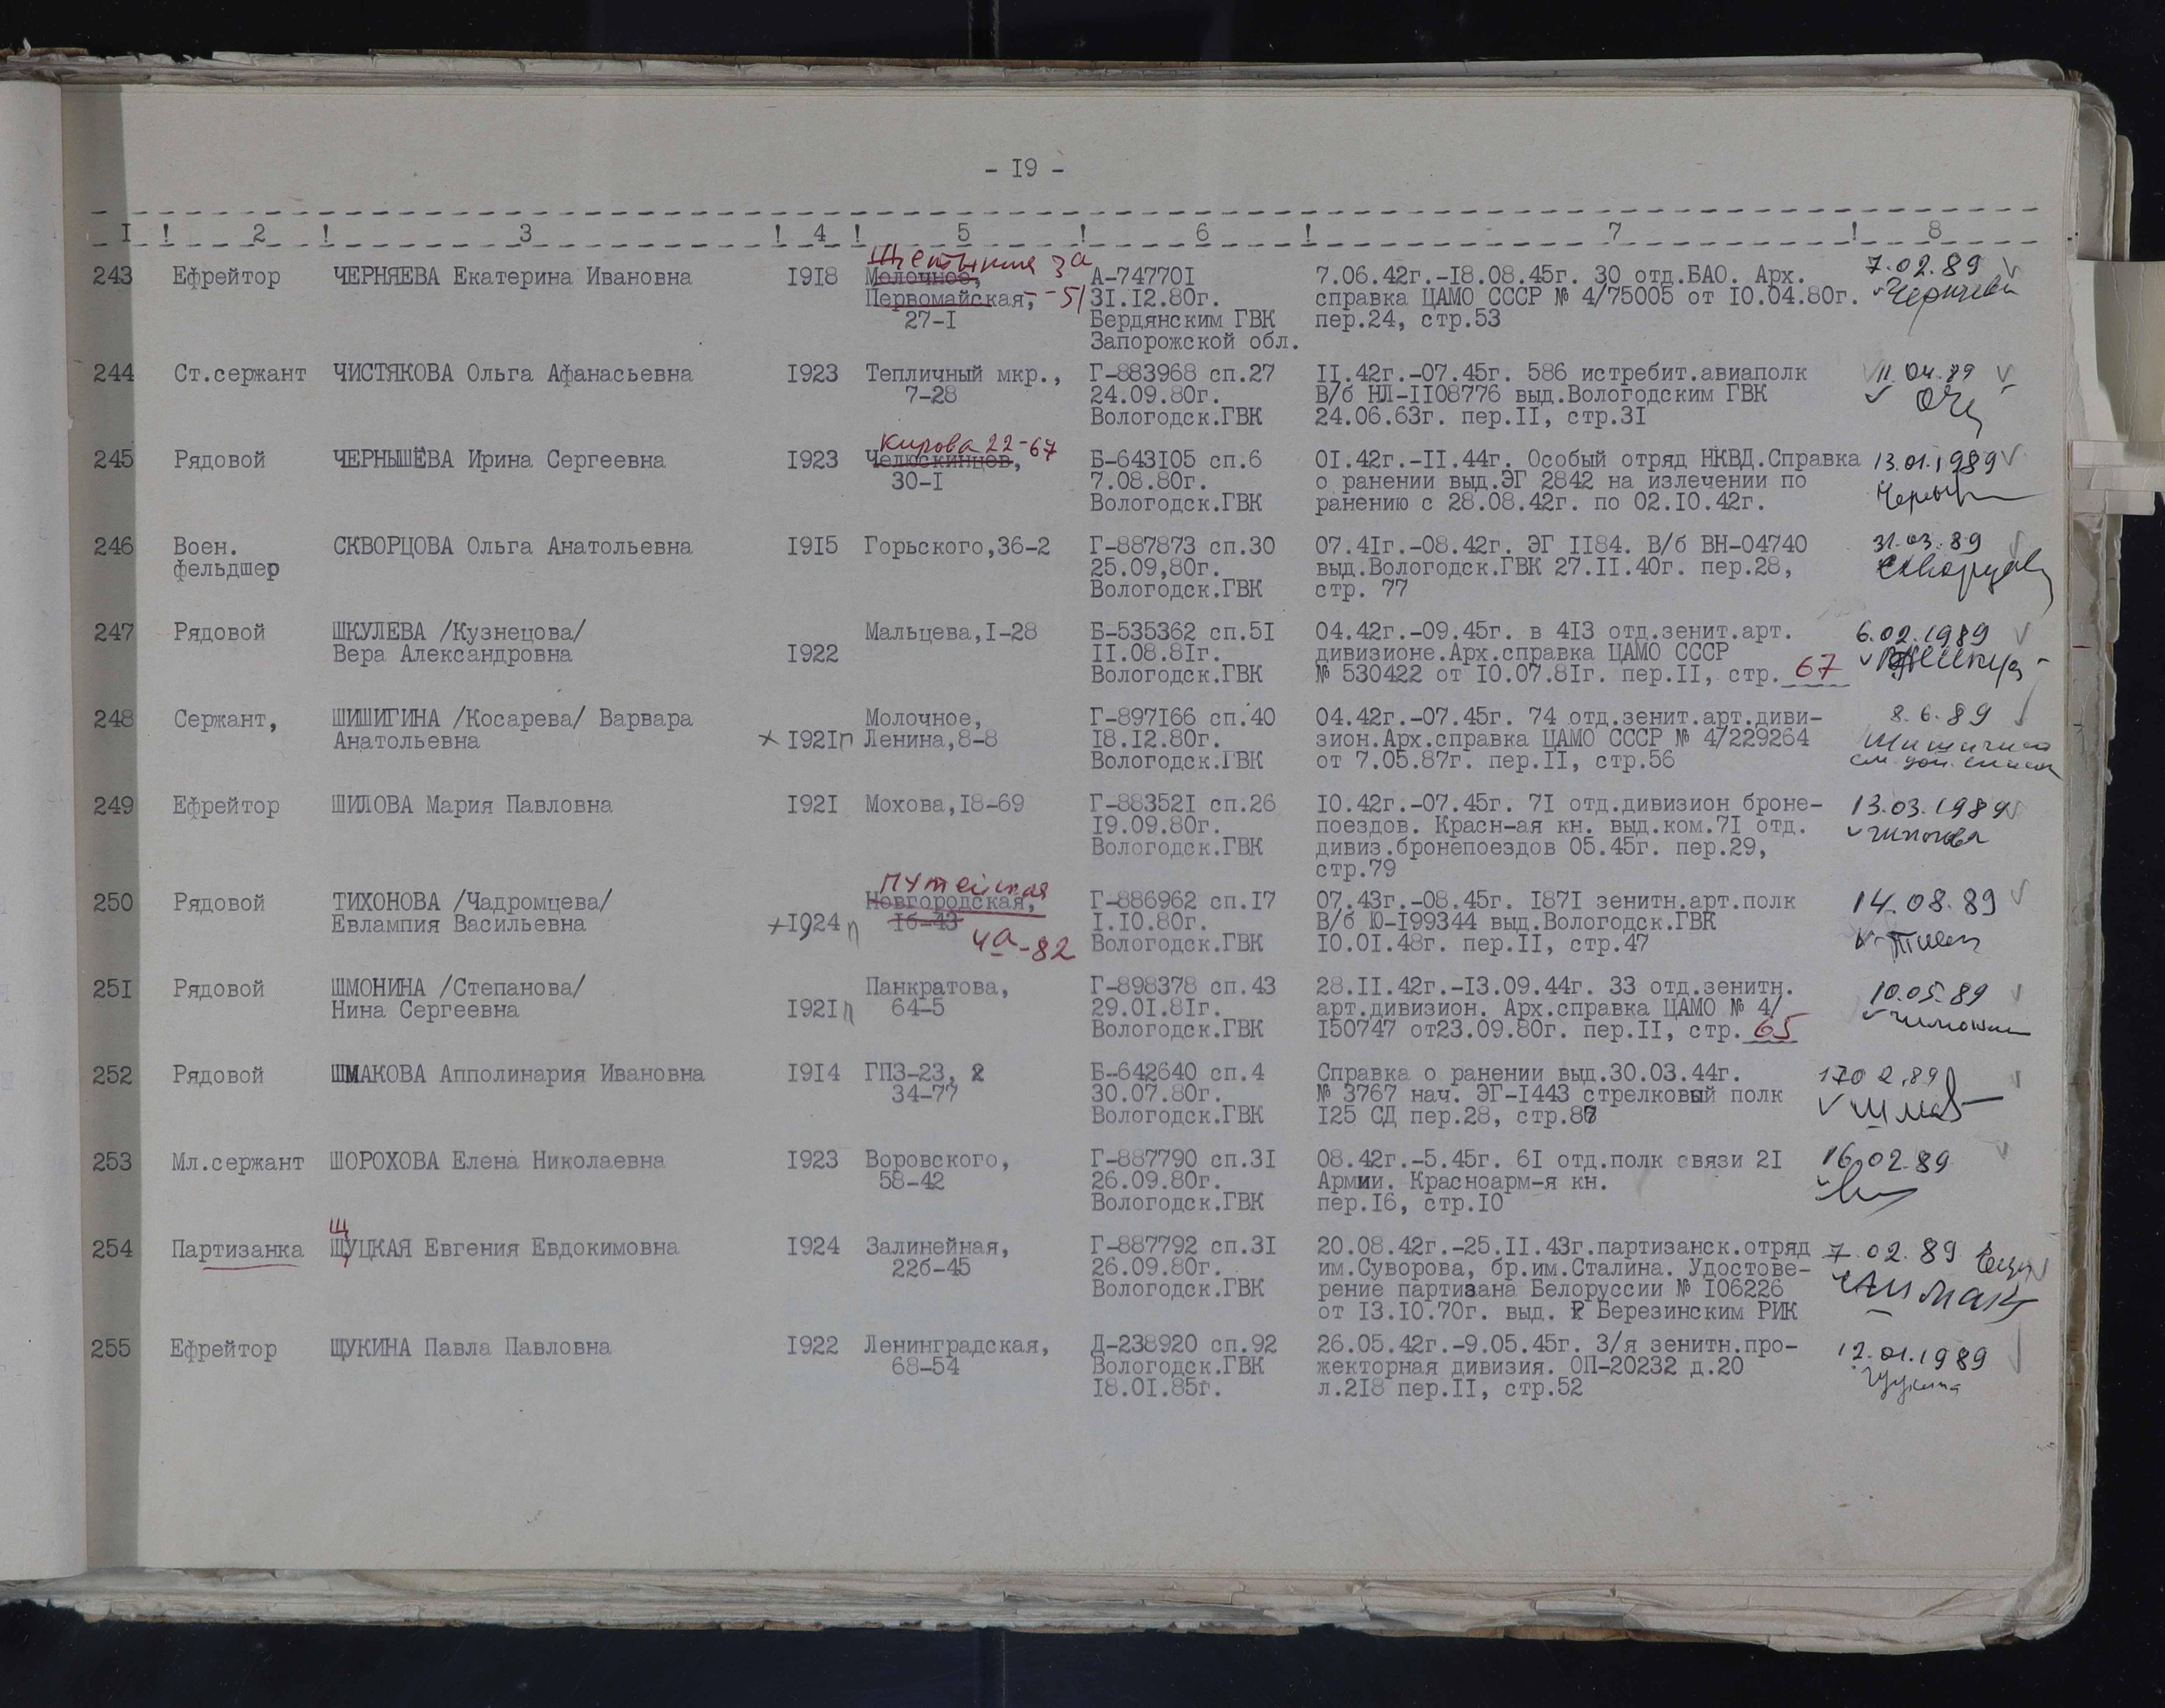 - I9 -
I ! 2 ! 3 ! 4 ! 5 ! 6 ! 7 ! 8
243 Ефрейтор ЧЕРНЯЕВА Екатерина Ивановна I9I8 Молочное, 3а А-74770I 7.06.42г.-I8.08.45г. 30 отд.БАО. Арх. 7.02.89
Первомайская, -51 3I.I2.80г. справка ЦАМО СССР № 4/75005 от I0.04.80г.
27-I Бердянским ГВК пер.24, стр.53
Запорожской обл.
244 Ст.сержант ЧИСТЯКОВА Ольга Афанасьевна I923 Тепличный мкр., Г-883968 сп.27 II.42г.-07.45г. 586 истребит.авиаполк 11.04.89
7-28 24.09.80г. В/б НЛ-II08776 выд.Вологодским ГВК
Вологодск.ГВК 24.06.63г. пер.II, стр.3I
Кирова 22-67
245 Рядовой ЧЕРНЫШЁВА Ирина Сергеевна I923 Челюскинцев, Б-643I05 сп.6 0I.42г.-II.44г. Особый отряд НКВД.Справка 13.01.1989
30-I 7.08.80г. о ранении выд.ЭГ 2842 на излечении по
Вологодск.ГВК ранению с 28.08.42г. по 02.I0.42г.
246 Воен. СКВОРЦОВА Ольга Анатольевна I9I5 Горького,36-2 Г-887873 сп.30 07.4Iг.-08.42г. ЭГ II84. В/б ВН-04740 31.03.89
фельдшер 25.09,80г. выд.Вологодск.ГВК 27.II.40г. пер.28,
Вологодск.ГВК стр. 77
247 Рядовой ШКУЛЕВА /Кузнецова/ Мальцева,I-28 Б-535362 сп.5I 04.42г.-09.45г. в 4I3 отд.зенит.арт. 6.02.1989
Вера Александровна I922 II.08.8Iг. дивизионе.Арх.справка ЦАМО СССР
Вологодск.ГВК № 530422 от I0.07.8Iг. пер.II, стр. 67
248 Сержант, ШИШИГИНА /Косарева/ Варвара Молочное, Г-897I66 сп.40 04.42г.-07.45г. 74 отд.зенит.арт.диви- 8.6.89
Анатольевна I92Iп Ленина,8-8 I8.I2.80г. зион.Арх.справка ЦАМО СССР № 4/229264
Вологодск.ГВК от 7.05.87г. пер.II, стр.56
249 Ефрейтор ШИЛОВА Мария Павловна I92I Мохова,I8-69 Г-88352I сп.26 I0.42г.-07.45г. 7I отд.дивизион броне- 13.03.1989
I9.09.80г. поездов. Красн-ая кн. выд.ком.7I отд.
Вологодск.ГВК дивиз.бронепоездов 05.45г. пер.29,
стр.79
Путейская
250 Рядовой ТИХОНОВА /Чадромцева/ Новгородская, Г-886962 сп.I7 07.43г.-08.45г. I87I зенитн.арт.полк 14.08.89
Евлампия Васильевна I924п I6-43 I.I0.80г. В/б Ю-I99344 выд.Вологодск.ГВК
4а-82 Вологодск.ГВК I0.0I.48г. пер.II, стр.47
25I Рядовой ШМОНИНА /Степанова/ Панкратова, Г-898378 сп.43 28.II.42г.-I3.09.44г. 33 отд.зенитн. 10.05.89
Нина Сергеевна I92Iп 64-5 29.0I.8Iг. арт.дивизион. Арх.справка ЦАМО № 4/
Вологодск.ГВК I50747 от23.09.80г. пер.II, стр. 65
252 Рядовой ШМАКОВА Апполинария Ивановна I9I4 ГПЗ-23, 2 Б-642640 сп.4 Справка о ранении выд.30.03.44г. 1702.89
34-77 30.07.80г. № 3767 нач. ЭГ-I443 стрелковый полк
Вологодск.ГВК I25 СД пер.28, стр.
253 Мл.сержант ШОРОХОВА Елена Николаевна I923 Воровского, Г-887790 сп.3I 08.42г.-5.45г. 6I отд.полк связи 2I 16.02.89
58-42 26.09.80г. Армии. Красноарм-я кн.
Вологодск.ГВК пер.I6, стр.I0
Щ
254 Партизанка ЩУЦКАЯ Евгения Евдокимовна I924 Залинейная, Г-887792 сп.3I 20.08.42г.-25.II.43г.партизанск.отряд 7.02.89
22б-45 26.09.80г. им.Суворова, бр.им.Сталина. Удостове-
Вологодск.ГВК рение партизана Белоруссии № I06226
от I3.I0.70г. выд. Березинским РИК
255 Ефрейтор ЩУКИНА Павла Павловна I922 Ленинградская, Д-238920 сп.92 26.05.42г.-9.05.45г. 3/я зенитн.про- 12.01.1989
68-54 Вологодск.ГВК жекторная дивизия. ОП-20232 д.20
I8.0I.85г. л.2I8 пер.II, стр.52